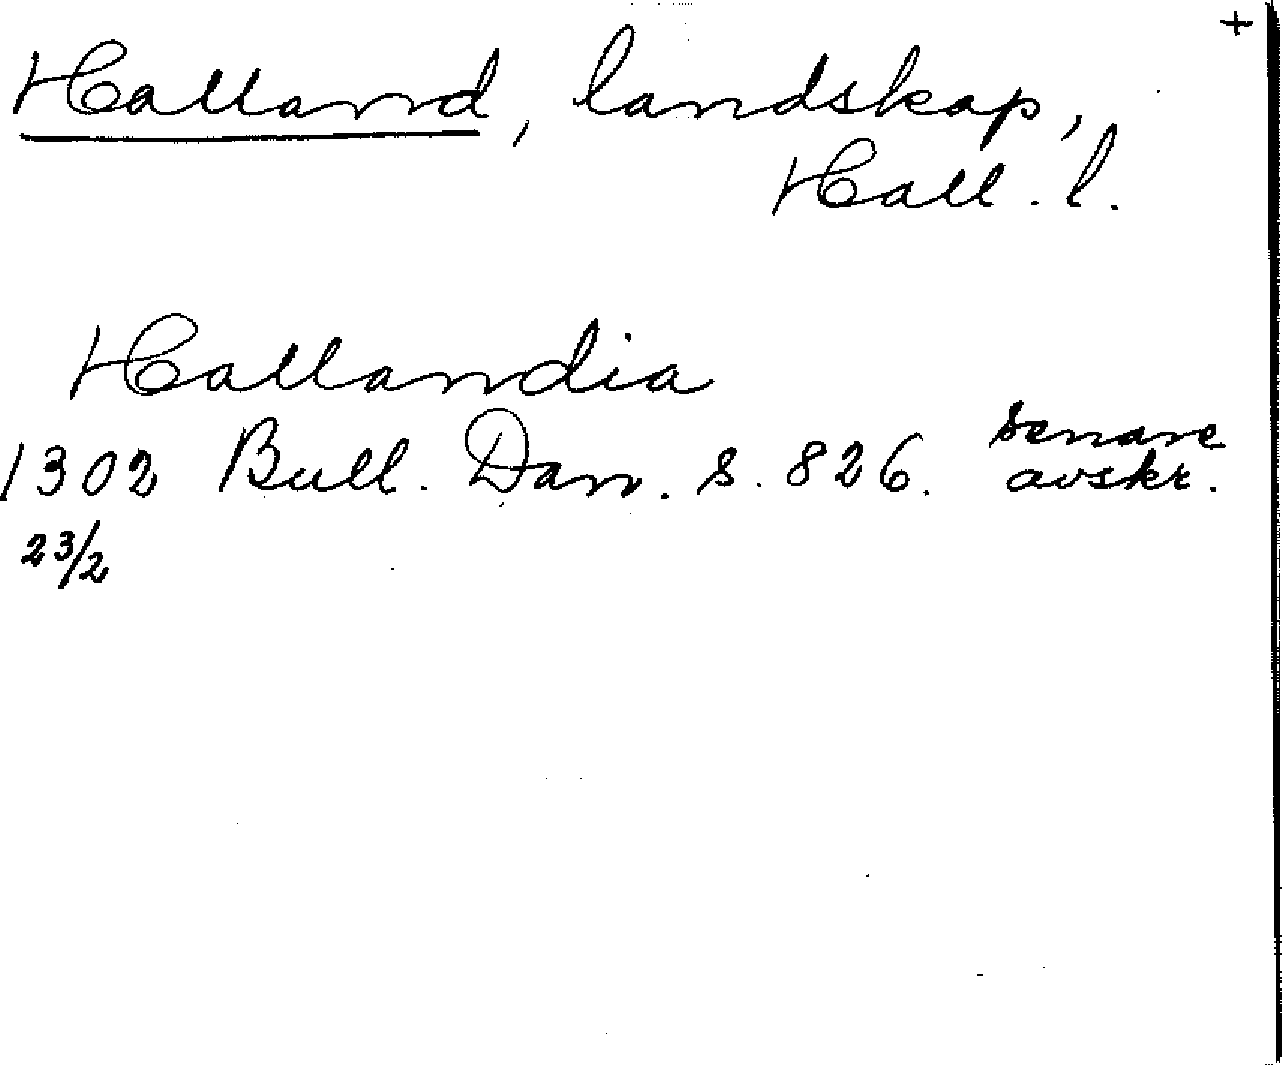 +
Halland, landskap,
Hall. l.
Hallandia
1302 Bull. Dan. s. 826. senare avskr.
23/2